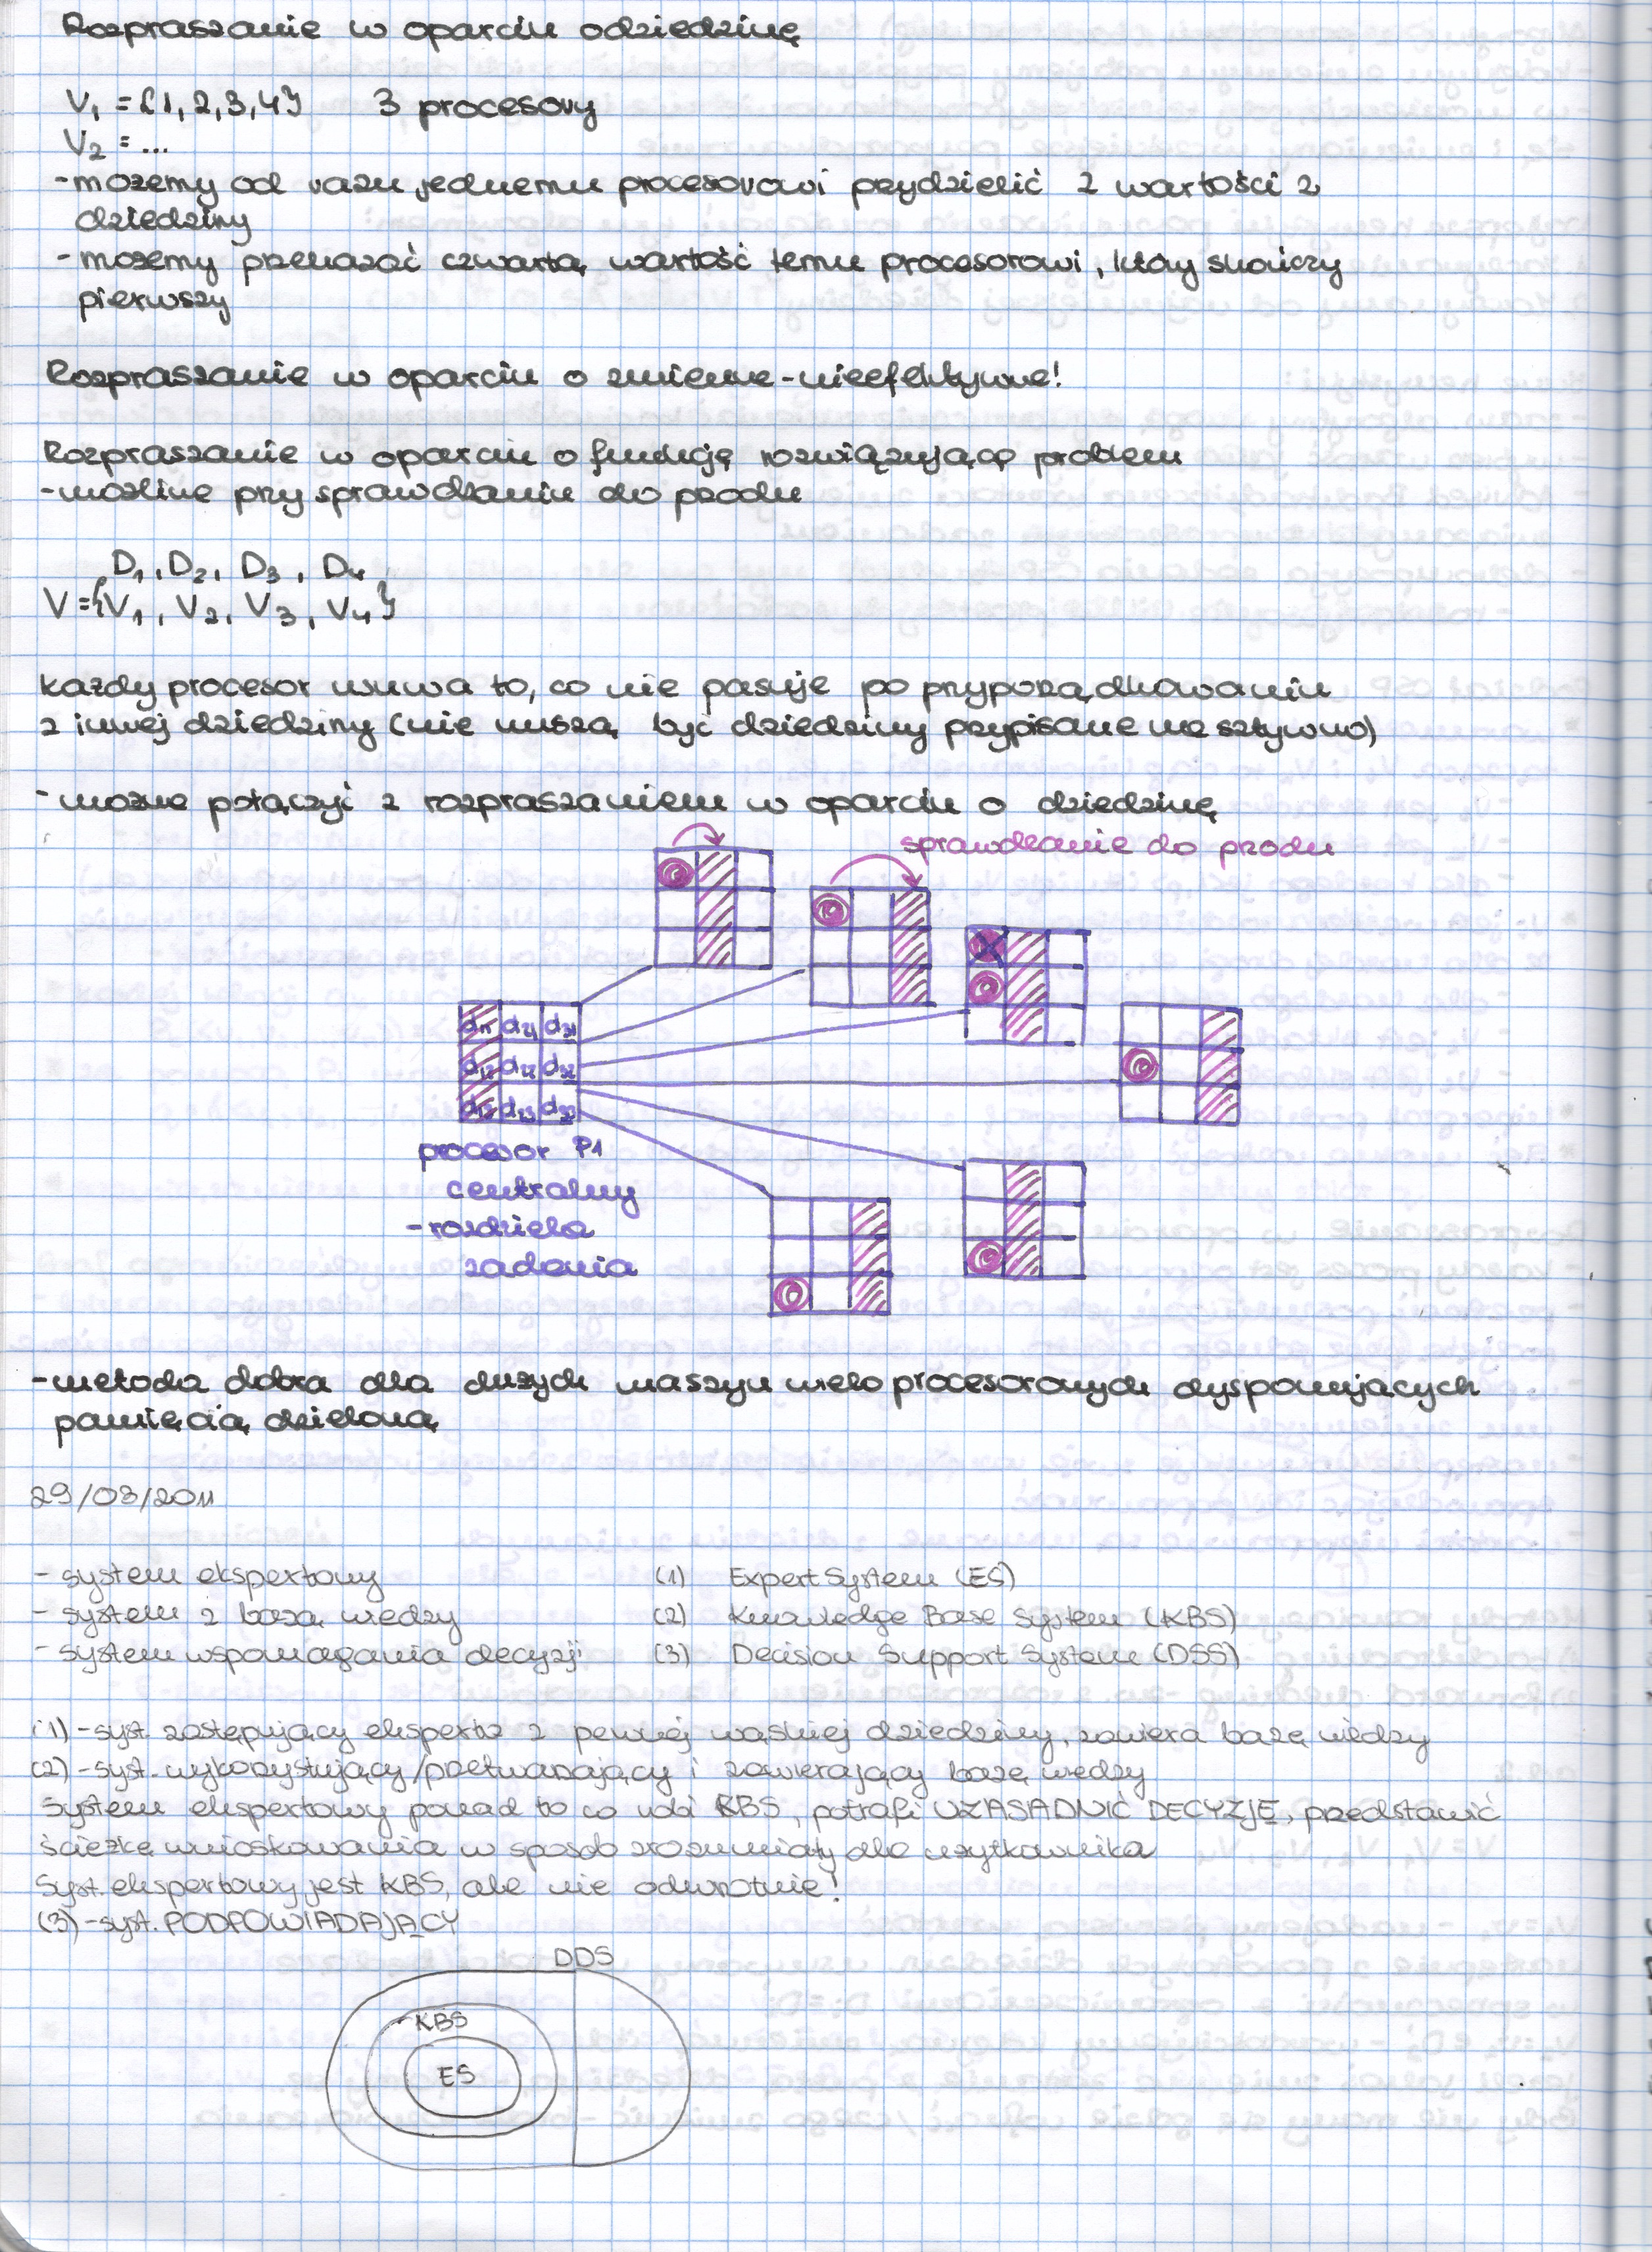 Rozpraszanie w oparciu o dziedzinę
V₁ = {1, 2, 3, 4} 3 procesory
V₂ = ...
- możemy od razu jednemu procesorowi przydzielić 2 wartości z
dziedziny
- możemy przekazać czwartą wartość temu procesorowi, który skończy
pierwszy
Rozpraszanie w oparciu o zmienne - nieefektywne!
Rozpraszanie w oparciu o funkcję rozwiązującą problem
- możliwe przy sprawdzaniu do przodu
D₁, D₂, D₃, D₄
V = {V₁, V₂, V₃, V₄}
każdy procesor usuwa to, co nie pasuje po przyporządkowaniu
z innej dziedziny (nie muszą być dziedziny przypisane na sztywno)
- można połączyć z rozpraszaniem w oparciu o dziedzinę
sprawdzanie do przodu
d₁₁ d₂₁ d₃₁
d₁₂ d₂₂ d₃₂
d₁₃ d₂₃ d₃₃
procesor P1
centralny
- rozdziela
zadania
- metoda dobra dla dużych maszyn wieloprocesorowych dysponujących
pamięcią dzieloną
29/03/2011
- system ekspertowy (1) Expert System (ES)
- system z bazą wiedzy (2) Knowledge Base System (KBS)
- system wspomagania decyzji (3) Decision Support System (DSS)
(1) - syst. zastępujący eksperta z pewnej wąskiej dziedziny, zawiera bazę wiedzy
(2) - syst. wykorzystujący/przetwarzający i zawierający bazę wiedzy
System ekspertowy ponad to co robi KBS, potrafi UZASADNIĆ DECYZJĘ, przedstawić
ścieżkę wnioskowania w sposób zrozumiały dla użytkownika
Syst. ekspertowy jest KBS, ale nie odwrotnie!
(3) - syst. PODPOWIADAJĄCY
DDS
KBS
ES